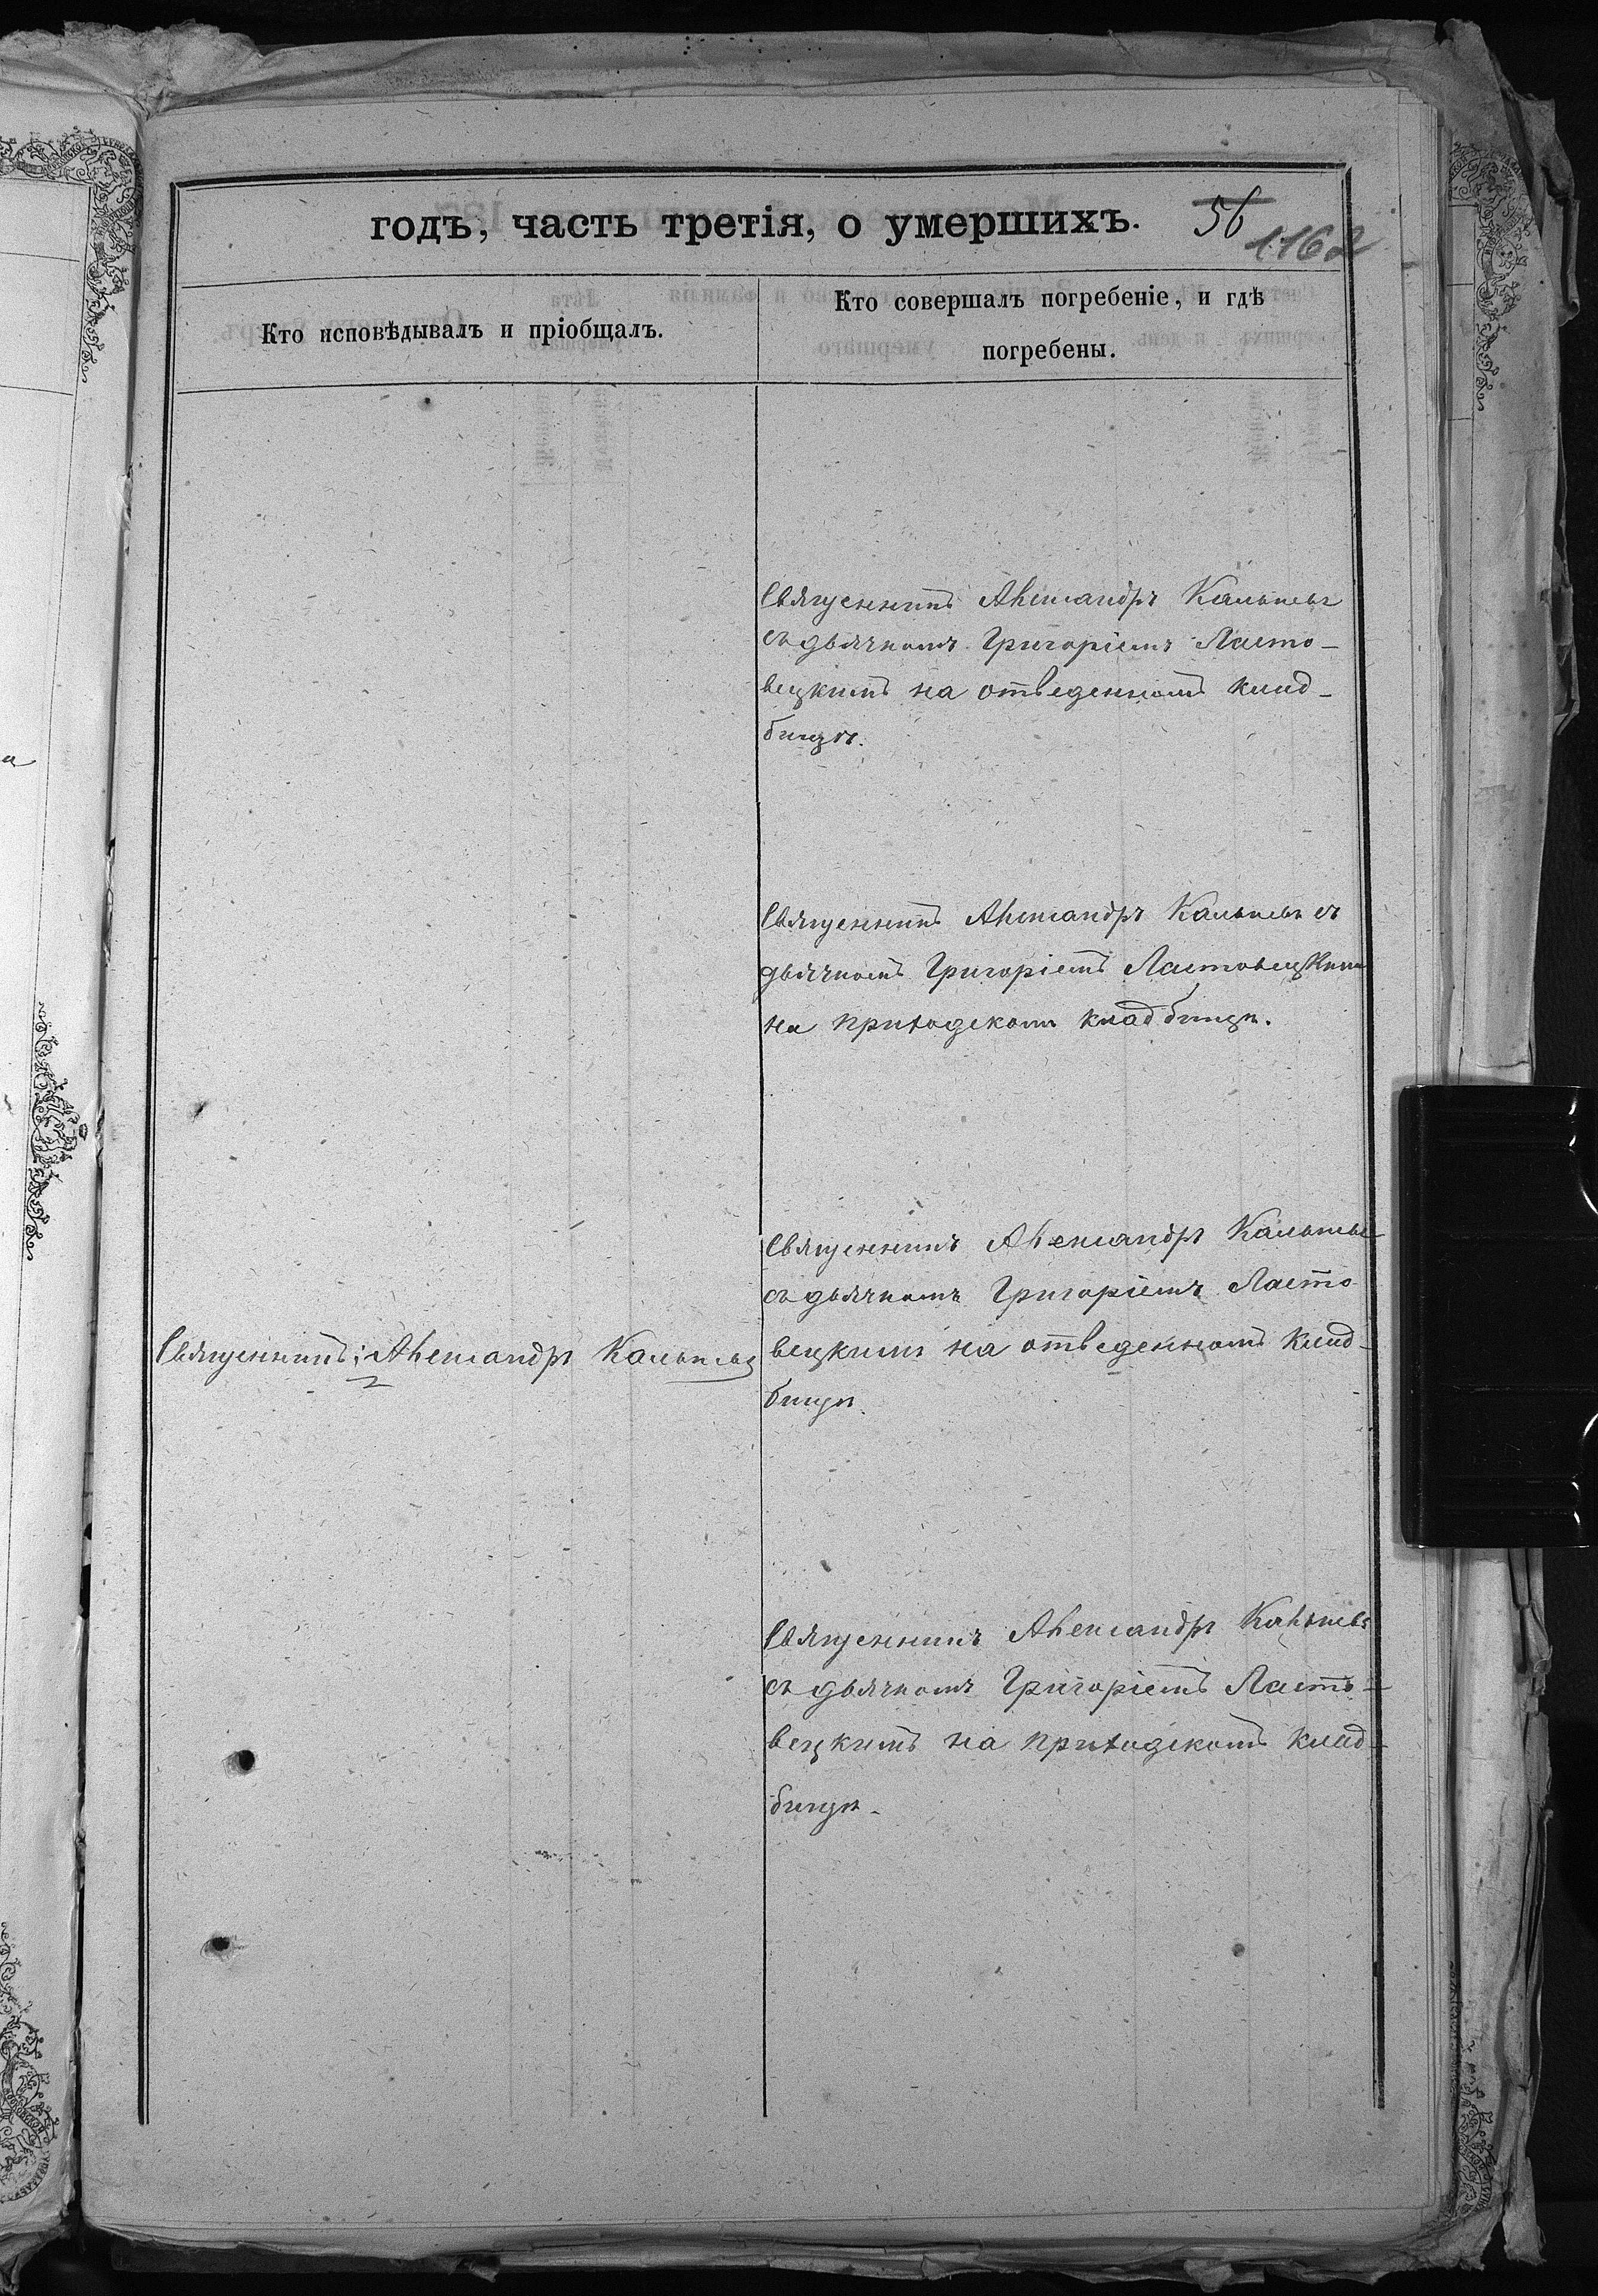 годъ, часть третія, о умершихъ.
56
1162
Кто исповѣдывалъ и пріобщалъ.
Кто совершалъ погребеніе, и гдѣ
погребены.
Священникъ Александръ Кальневъ
съ дьячкомъ Григоріемъ Ласто-
вецкимъ на отведенномъ клад-
бищѣ.
Священникъ Александръ Кальневъ съ
дьячкомъ Григоріемъ Ластовецкимъ
на приходскомъ кладбищѣ.
Священникъ Александръ Кальневъ
съ дьячкомъ Григоріемъ Ласто
Священникъ: Александръ Кальневъ
вецкимъ на отведенномъ клад-
бищѣ.
Священникъ Александръ Кальневъ
съ дьячкомъ Григоріемъ Ласто-
вецкимъ на приходскомъ клад-
бищѣ.